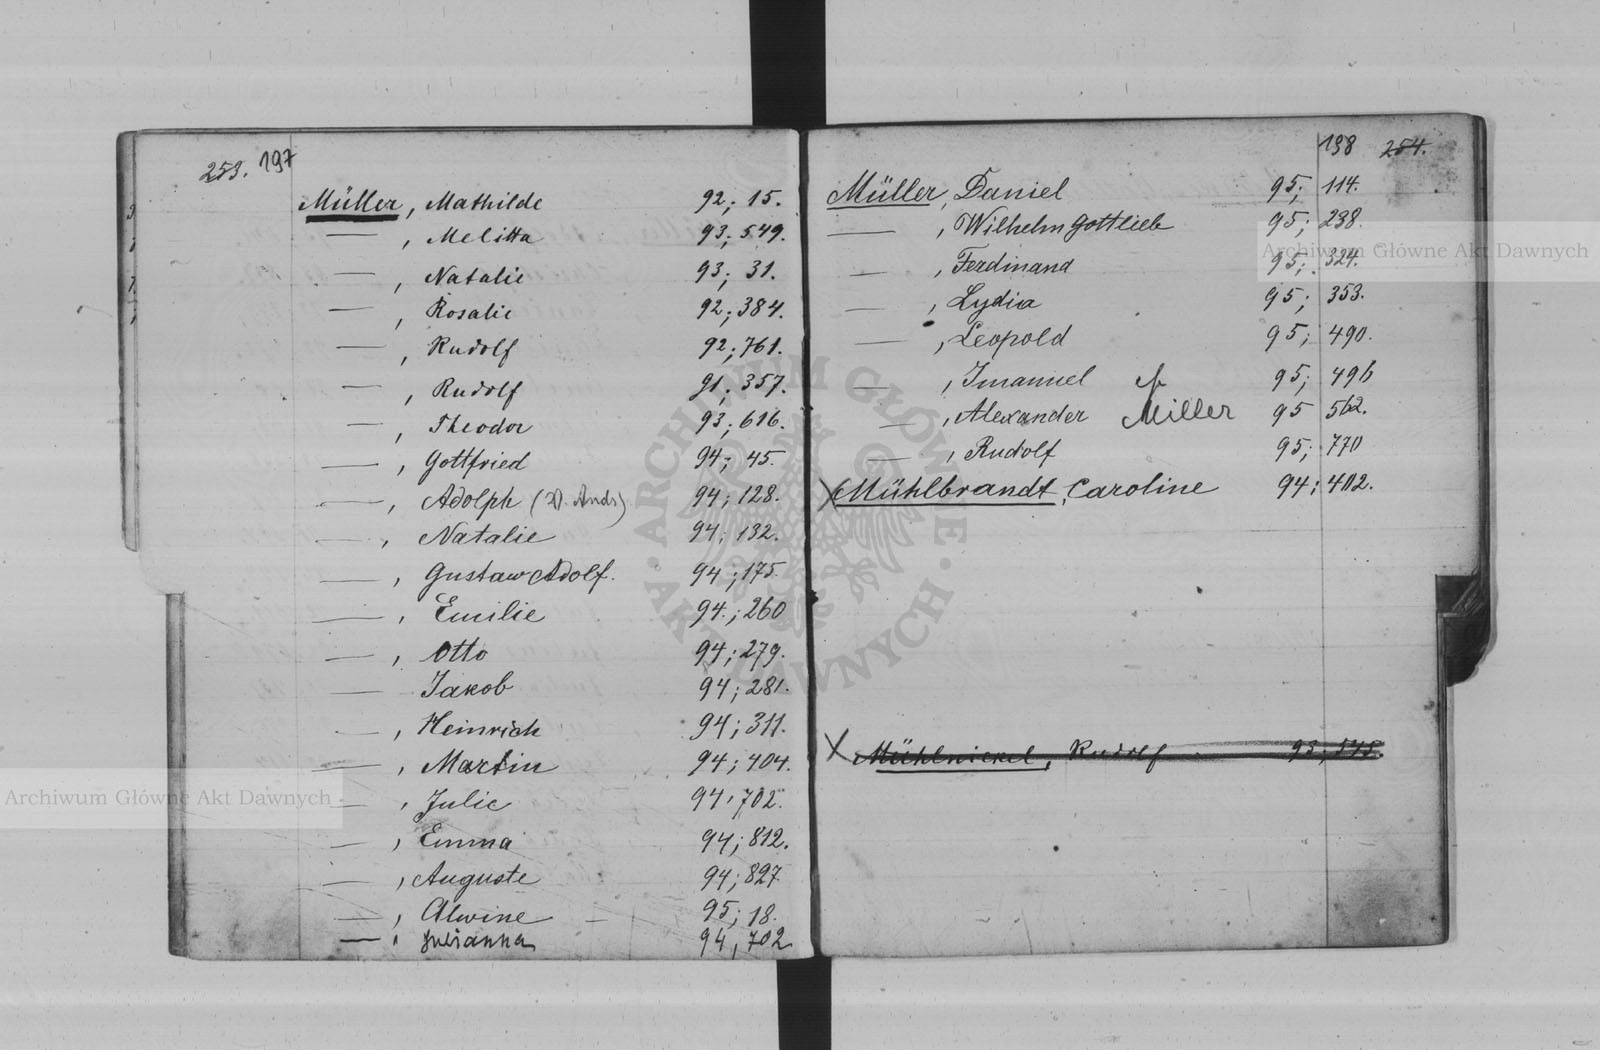 253. 197
Müller, Mathilde 92; 15.
—, Melitta 93; 549.
—, Natalie 93; 31.
—, Rosalie 92; 384.
—, Rudolf 92; 761.
—, Rudolf 91; 357.
—, Theodor 93; 616.
—, Gottfried 94; 45.
—, Adolph 94; 128.
—, Natalie 94; 132.
—, Gustaw Adolf. 94; 175.
—, Emilie 94; 260
—, Otto 94; 279.
— Jakob 94; 281.
—, Heinrich 94; 311.
—, Martin 94; 404.
—, Julie 94, 702.
—, Emma 94; 812.
—, Auguste 94; 827
—, Alwine 95; 18.
—, Julianna 94, 702
198 254.
Müller, Daniel 95; 114.
—, Wilhelm Gottlieb 95; 238.
—, Ferdinand 95; 324.
—, Lydia 95; 353.
—, Leopold 95; 490.
—, Imanuel 95; 496
—, Alexander Miller 95 562.
—, Rudolf 95; 770
X Mühlbrandt, Caroline 94; 402.
X Mühlnickel, Rudolf 93;
Archiwum Główne Akt Dawnych
Archiwum Główne Akt Dawnych
ARCHIWUM GŁÓWNE AKT DAWNYCH